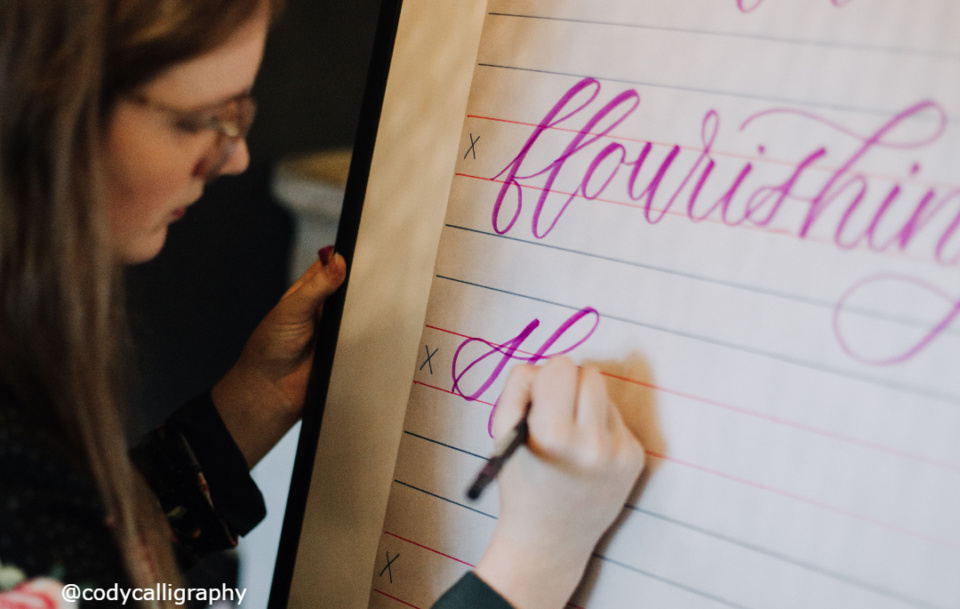 x flourishin
x
x
@codycalligraphy